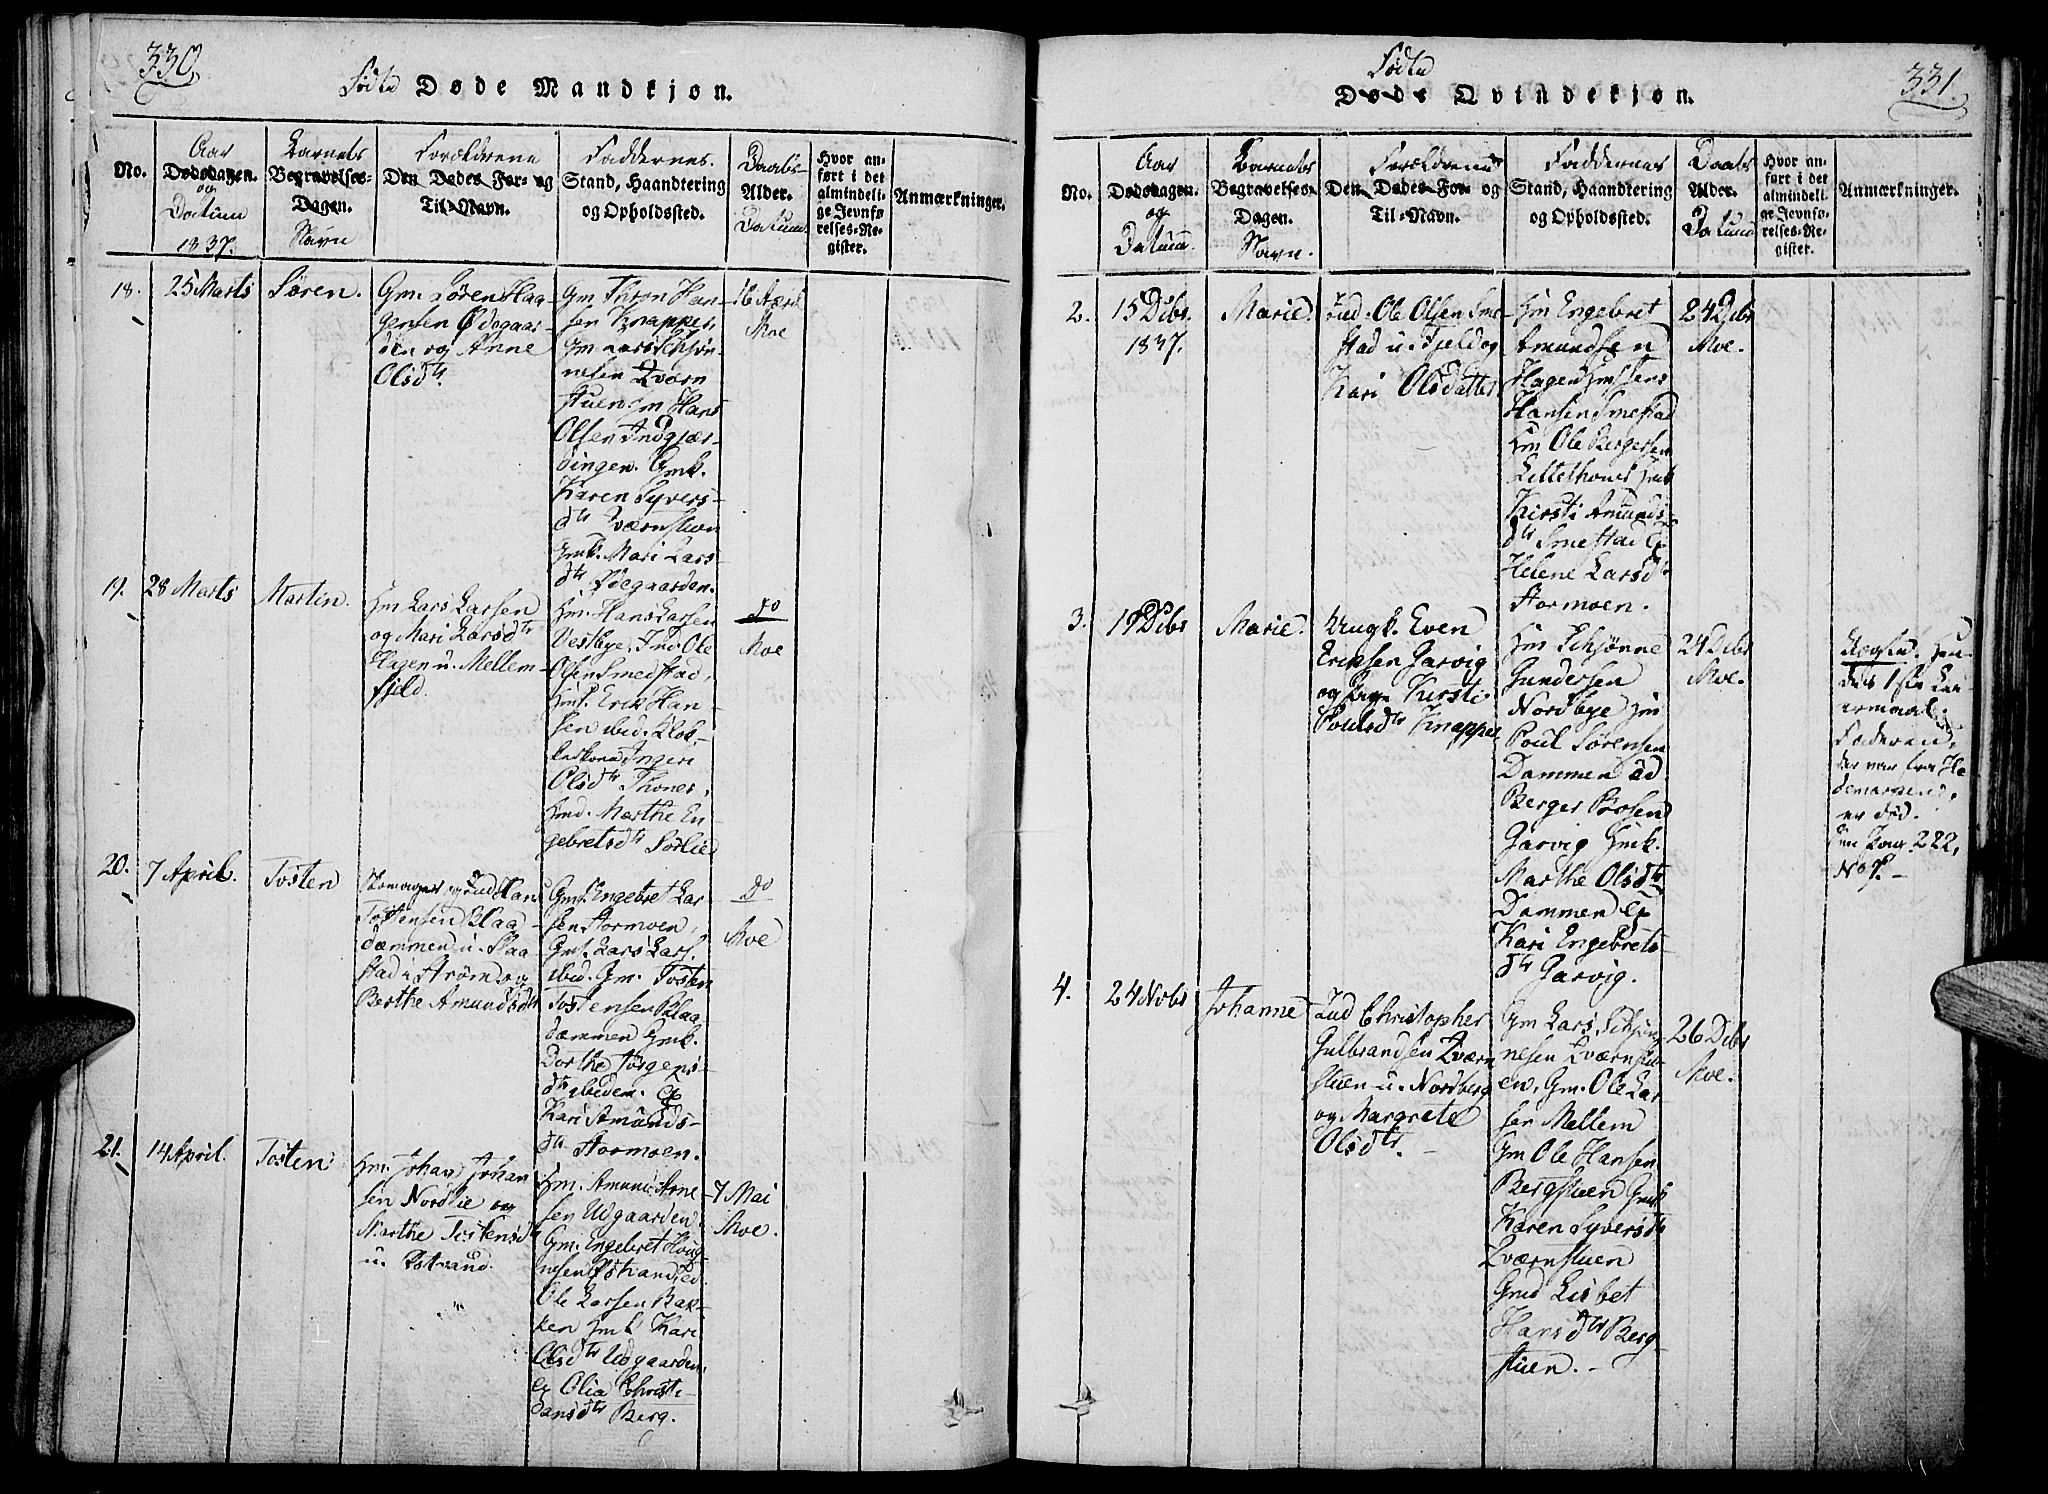 330.
Fødte Døde Mandkjøn.
No.
Aar
Dødsdagen.
og
Datum
1837.
Barnets
Begravelses-
Dagen.
Navn
Forældrene
Den Dødes For- og
Til-Navn.
Faddernes.
Stand, Haandtering
og Opholdssted.
Daabs-
Alder.
Datum
Hvor an-
ført i det
almindeli-
ge Jevnfø-
relses-Re-
gister.
Anmærkninger.
18.
25 Marts
Søren.
Gm. Søren Haa-
gensen Ødegaar-
den og Anne
Olsdtr.
Gm. Thron Han-
sen Knapper,
Gm. Lars Schjøn-
nesen Qværn
stuen. Em Hans
Olsen Indgjær-
dingen. Gmk.
Karen Syvers-
dtr Qværnstuen
Gmk. Mari Lars
dtr Ødegaarden.
16 April
Moe
19.
28 Marts
Martin.
Hm Lars Larsen
og Mari Larsdtr
Hagen u. Mellem-
fjeld.
Hm. Hans Larsen
Vestbye, Ind Ole
Olsen Smedstad,
Hmf. Erik Han-
sen ibid. Klok-
kerkone Ingeri
Olsdtr Thoner,
Hmd. Marthe En-
gebretsdtr Sørlie
do
Moe
20.
7 April.
Tosten
Skomager og Ind Hans
Tostensen Blaa-
dammen u. Skaa
stad i Strøm og
Berthe Amundsdtr
Gmf. Engebret Lar-
sen Stormoen,
Gmf. Lars Lars.
ibid. Gm. Tosten
Tostensen Blaa
dammen Gmk.
Dorthe Jørgens-
dtr ibidem. &
Kari Amunds-
dtr Stormoen.
do
Moe
21.
14 April.
Tosten
Hm. Johan Johan
sen Nordlie og
Marthe Tostensdtr
u. Østrand.
Hm. Amund Arne
sen Udgaarden,
Gm. Engebret Haag
nesen Østrand,
Ole Larsen Bak-
ken Hmk Kari
Olsdtr Udgaarden,
& Olia Christi-
ansdtr Berg.
7 Mai
Moe.
331.
Fødte
Døde Qvindekjøn.
No.
Aar
Dødsdagen.
og
Datum.
Barnets
Begravelses-
Dagen.
Navn.
Forældrene
Den Dødes For- og
Til-Navn.
Faddernes
Stand, Haandtering
og Opholdssted.
Daabs
Alder.
Datum
Hvor an-
ført i det
almindeli-
ge Jevnfø-
relses-Re-
gister.
Anmærkninger.
2.
15 Dcbr.
1837.
Marie.
Ind. Ole Olsen Sme-
stad u. Fjeld og
Kari Olsdatter
Hm Engebret
Amundsen
Hagen Hm Jens
Hansen Smestad
Hm Ole Bergersen
Lillethoner Hmk
Kirsti Amunds-
dtr Smestad &
Helene Larsdtr
Stormoen.
24 Dcbr
Moe.
3.
19 Dcbr
Marie.
Ungk. Even
Eriksen Jarvig
og Pige Kirsti
Poulsdtr Knapper
Hm Schjønne
Gundersen
Nordbye Hm
Poul Sørensen
Dammen
Berger
Jarvig Hmk.
Marthe Olsdtr
Dammen &
Kari Engebrets-
dtr Jarvig.
24 Dcbr
Moe.
Uegte. Hen-
des 1ste Lei
ermaal.
Faderen,
der var fra He
demarkend,
er død.
Pag. 222,
No 7.
4.
24 Novbr
Johanne
Ind Christopher
Gulbrandsen Qværn
stuen u. Nordberg
og Margrete
Olsdtr.
Gm Lars Schjøn-
nesen Qværnstu-
en, Gm. Ole Lar
sen Mellem
Gm Ole Hansen
Bergstuen Gmk
Karen Syversdtr
Qværnstuen
Gmd Lisbet
Hansdtr Berg
stuen.
26 Dcbr
Moe.